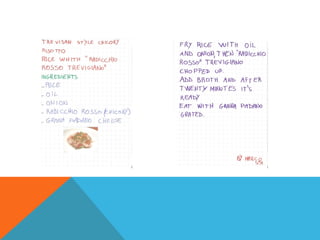 TREVISAN STYLE CHICORY
RISOTTO
RICE WHITH "RADICCHIO
ROSSO TREVIGIANO"
INGREDIENTS
- RICE
- OIL
- ONION
- RADICCHIO ROSSO (CHICORY)
- GRANA PADANO CHEESE
FRY RICE WITH OIL
AND ONION, THEN "RADICCHIO
ROSSO" TREVIGIANO
CHOPPED UP.
ADD BROTH AND AFTER
TWENTY MINUTES IT'S
READY
EAT WITH GRANA PADANO
GRATED.